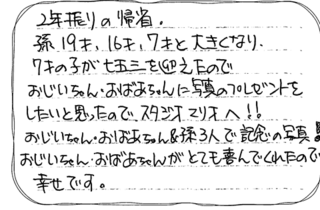 2年振りの帰省。
孫 19才、16才、7才と大きくなり、
7才の子が七五三を迎えたので
おじいちゃん・おばあちゃんに写真のプレゼントを
したいと思ったので、スタジオマリオへ!!
おじいちゃん・おばあちゃん&孫3人で記念の写真!!
おじいちゃん・おばあちゃんがとても喜んでくれたので
幸せです。